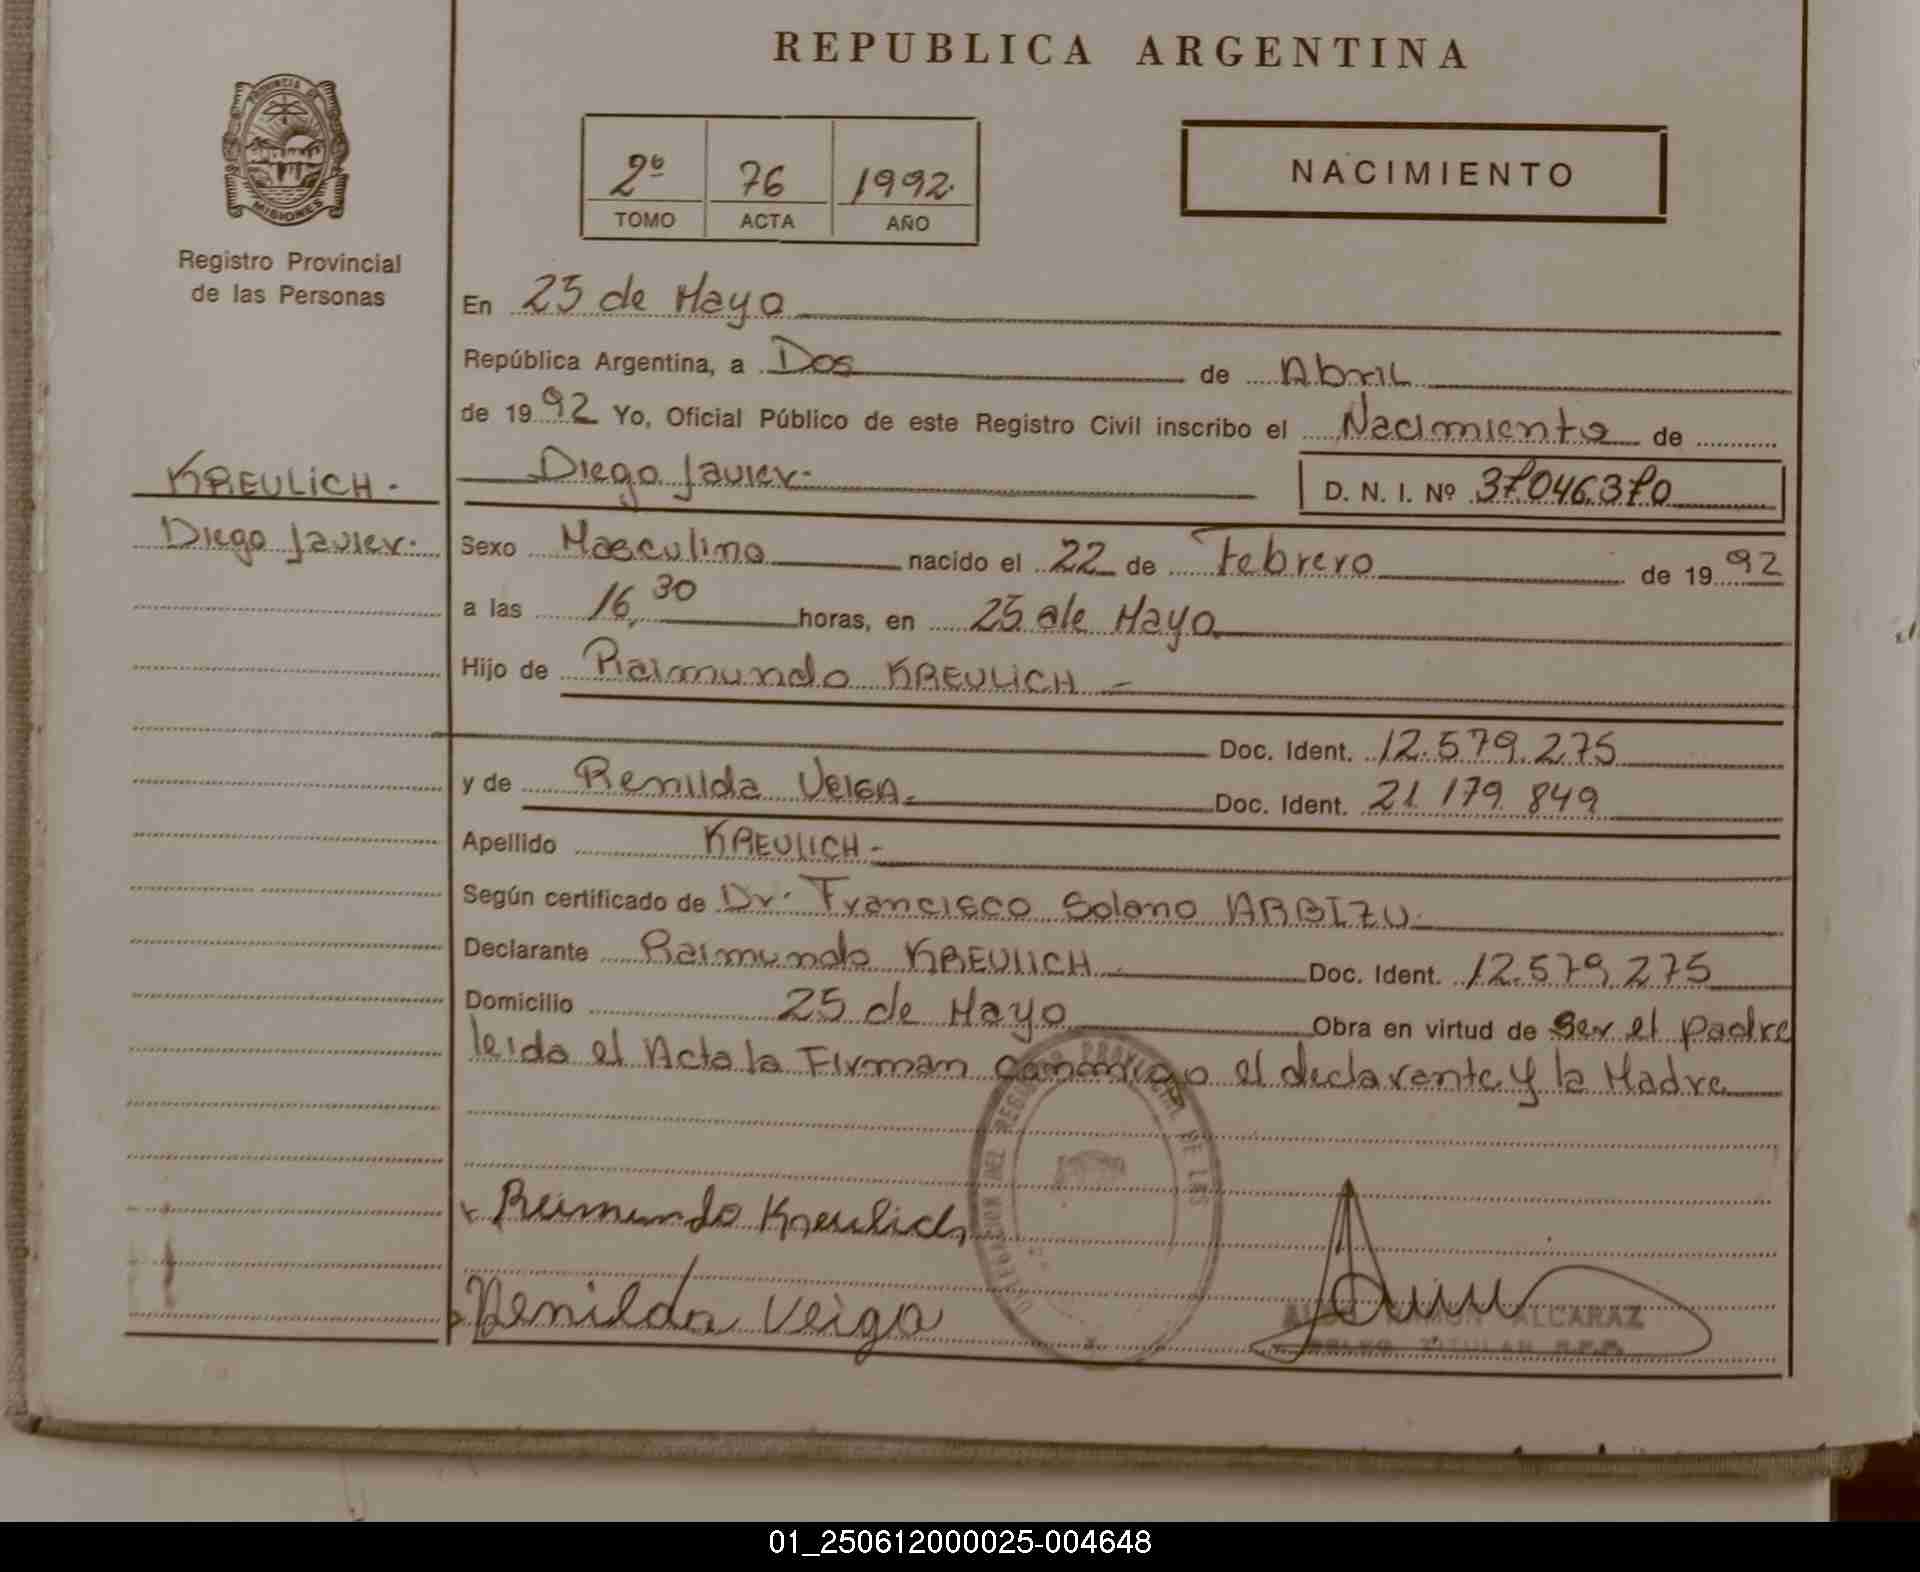 REPUBLICA ARGENTINA
PROVINCIA DE
MISIONES
Registro Provincial
de las Personas
2º 76 1992.
TOMO ACTA AÑO
NACIMIENTO
En 25 de Mayo
República Argentina, a Dos de Abril
de 1992 Yo, Oficial Público de este Registro Civil inscribo el Nacimiento de
KREULICH.-
Diego Javier.-
D. N. I. Nº 37.046.370
Diego Javier.
Sexo Masculino nacido el 22 de Febrero de 1992
a las 16,30 horas, en 25 de Mayo
Hijo de Raimundo KREULICH -
Doc. Ident. 12.579.275
y de Renilda VEIGA.- Doc. Ident. 21.179.849
Apellido KREULICH.-
Según certificado de Dr. Francisco Solano ARBIZU.
Declarante Raimundo KREULICH. Doc. Ident. 12.579.275
Domicilio 25 de Mayo Obra en virtud de Ser el padre
leida el Acta la Firman conmigo el declarante y la Madre
DELEGACION DEL REGISTRO PROVINCIAL DE LAS
Raimundo Kreulich
Renilda Veiga
ALCARAZ
TITULAR
01_250612000025-004648